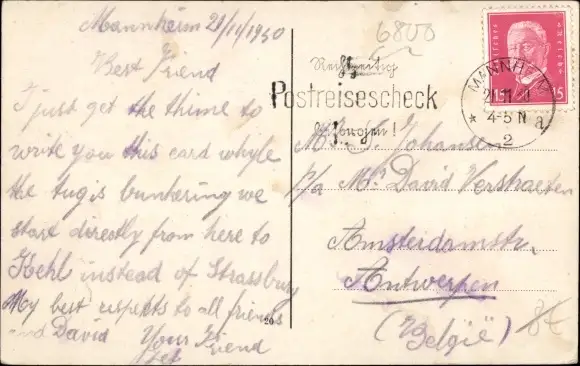 Mannheim 21/11/1930
Best Friend
I just get the thime to
write you this card whyle
the tug is bunkering we
start directly from here to
Kehl instead of Strassburg
My best respekts to all friends
and David Your Friend
20
6800
Rechtzeitig
Postreisescheck
besorgen!
MANNHEIM
4-5 N
2
a
Deutsches Reich
15 15
Johansen
p/a Mr David Verstraeten
Amsterdamstr.
Antwerpen
(België)
8€